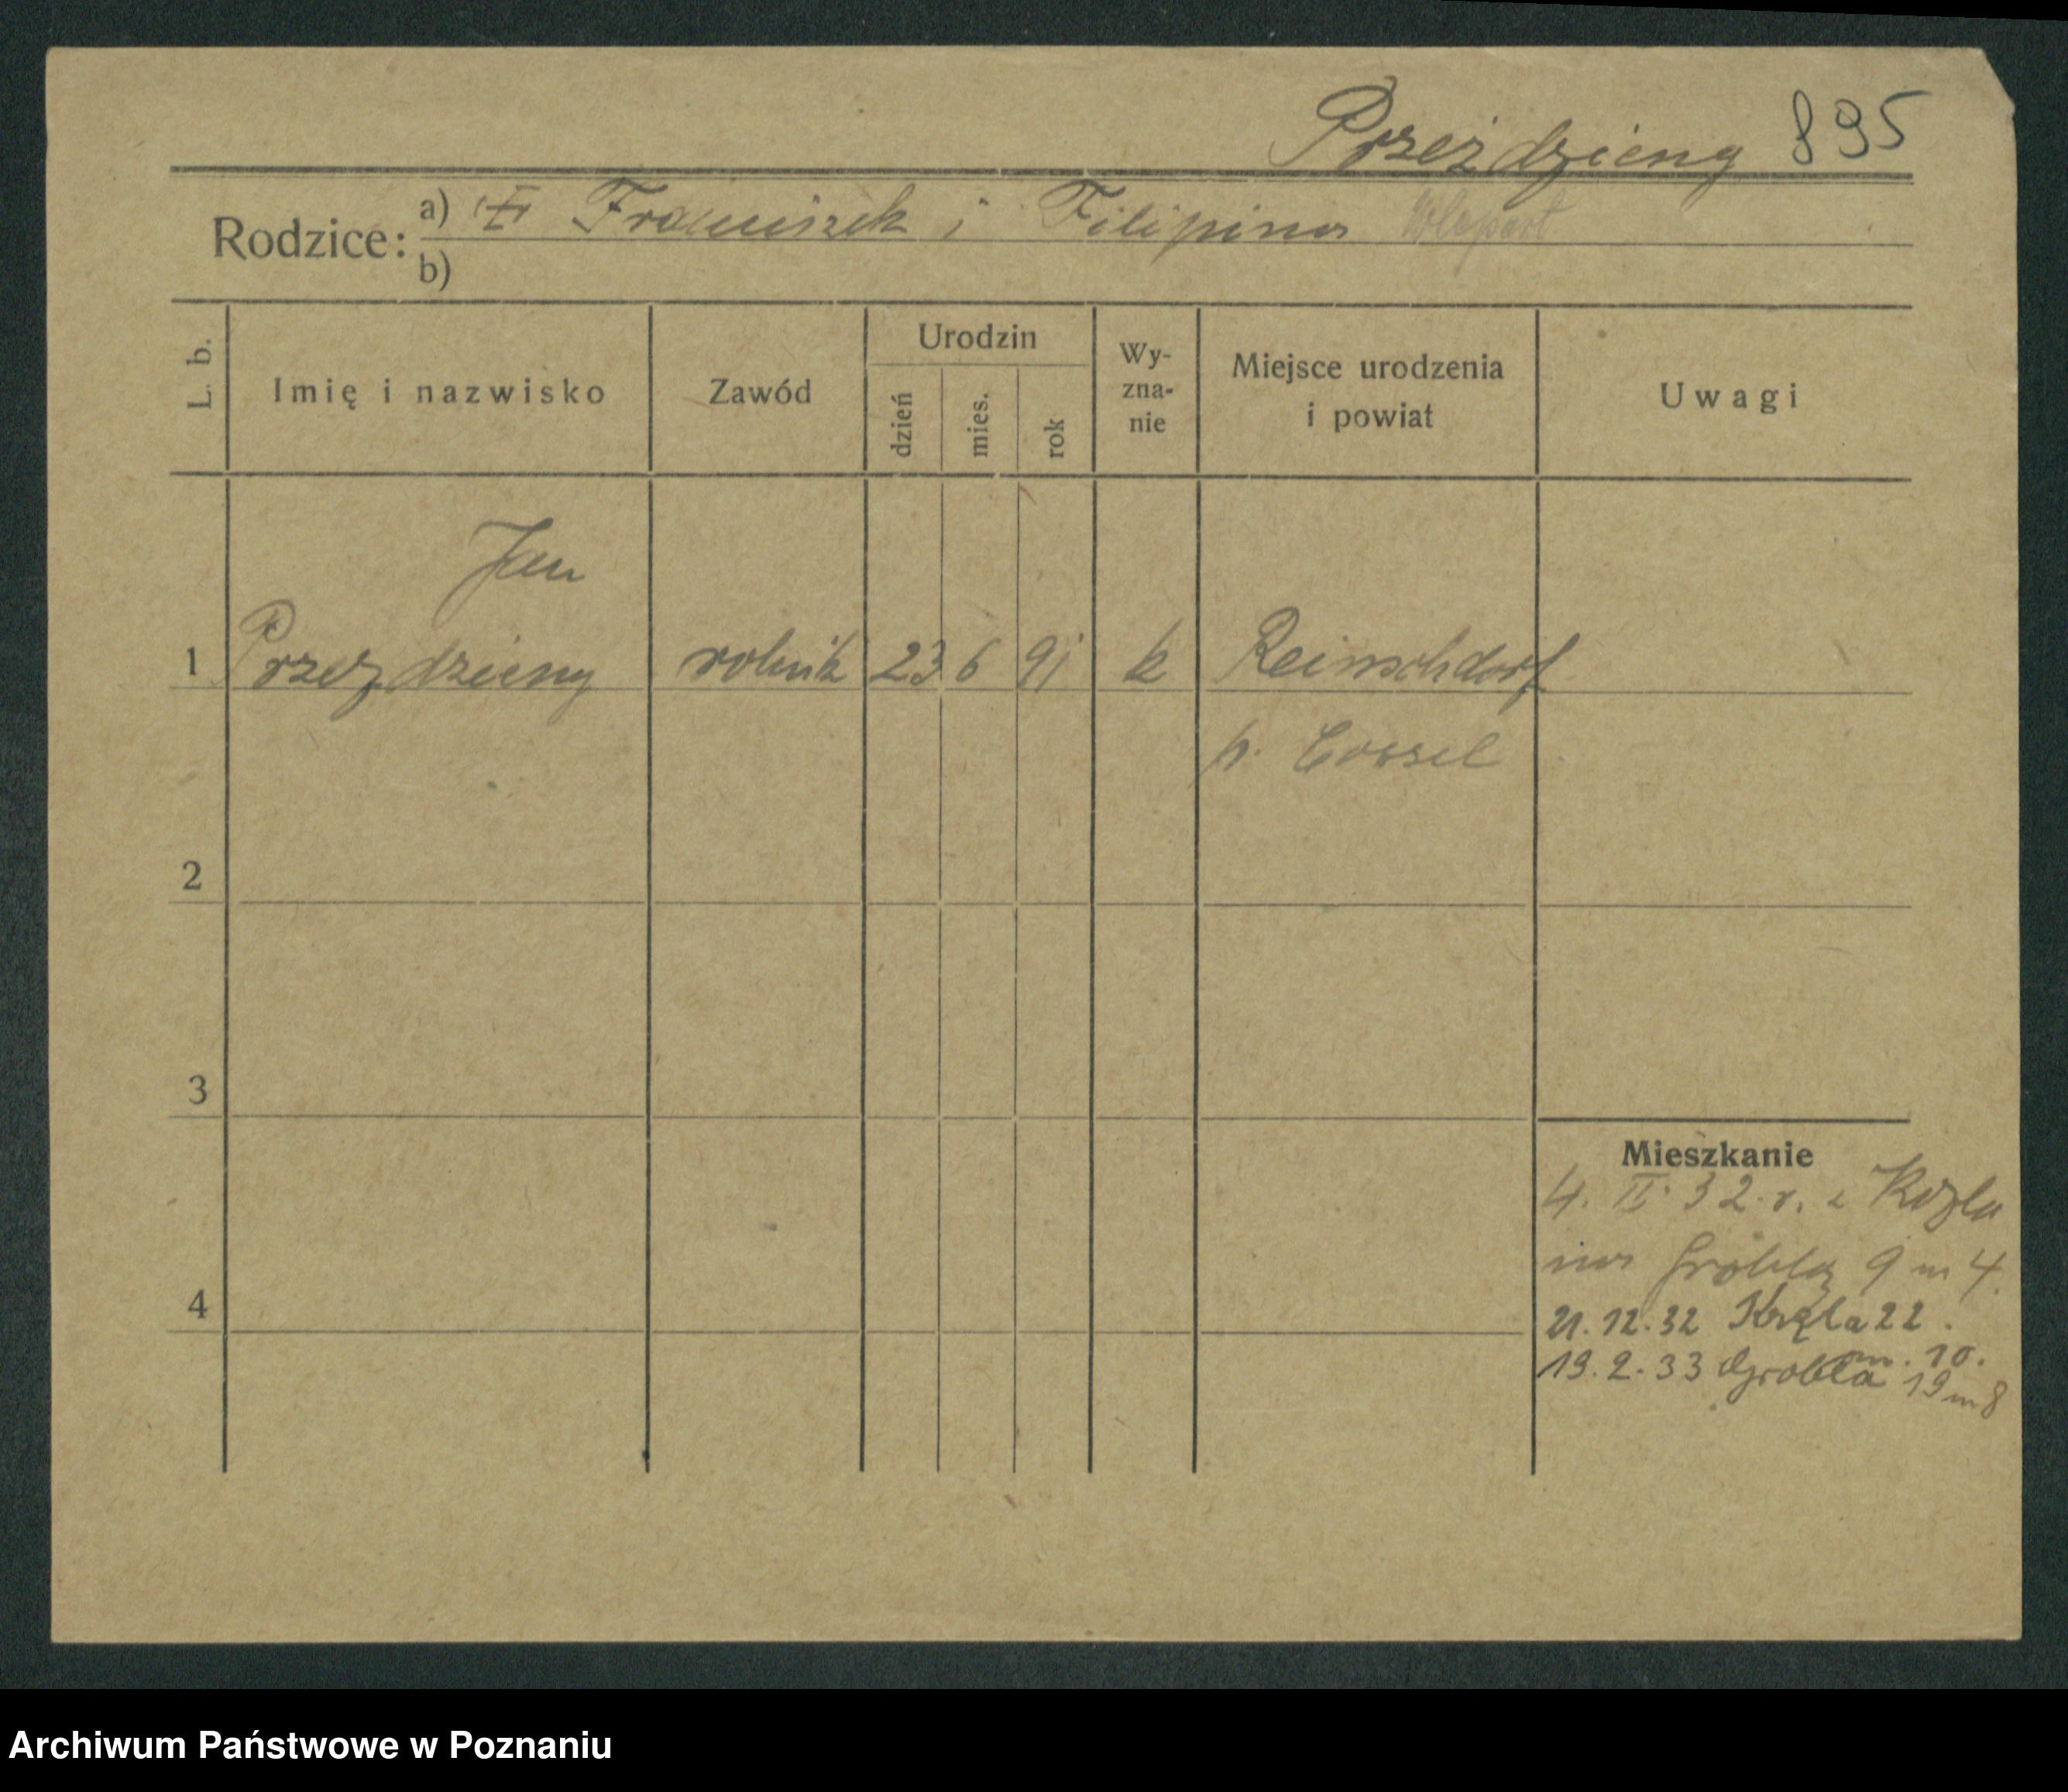 Przeździeny 895
Rodzice: a) Franciszek i Filipina
b)
L. b. Imię i nazwisko Zawód Urodzin dzień mies. rok Wy-zna-nie Miejsce urodzenia i powiat Uwagi
Jan
1 Przezdzieny rolnik 23 6 91 k Reinschdorf
p. Cossel
2
3
Mieszkanie
4. II. 32. r. z Kozla
na Groblą 9 m 4.
4
21.12.32 Kręta 22.
m. 10.
19.2.33 Grobla 19 m 8
Archiwum Państwowe w Poznaniu